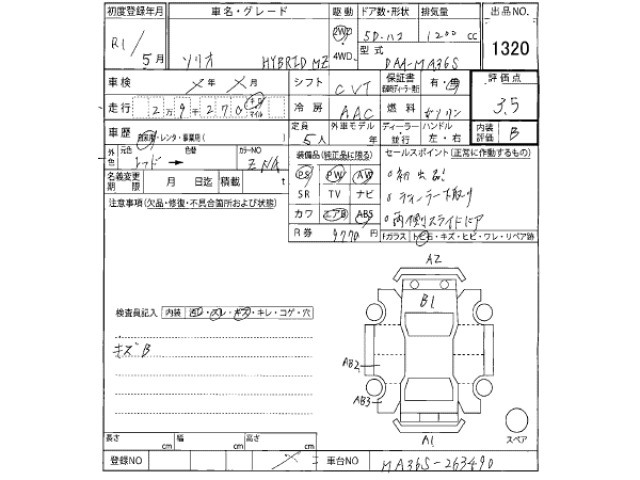 初度登録年月 車名・グレード 駆動 ドア数・形状 排気量 出品NO.
R1/5月 ソリオ HYBRID MZ 2WD 4WD 5D.ハコ 1200 cc 1320
型式 DAA-MA36S
車検 ×年 ×月 シフト CVT 保証書 有・無 評価点
走行 2 9 2 7 0 キロ マイル 冷房 AAC 燃料 ガソリン 3.5
車歴 自家用・レンタ・事業用( ) 定員 5人 外車モデル 年 ディーラー・並行 ハンドル 左・右 内装評価 B
外色 元色 レッド → 色替 カラーNO ZNN 装備品(純正品に限る) セールスポイント(正常に作動するもの)
名義変更期限 月 日迄 積載 t PS PW AW 。初出品!
注意事項(欠品・修復・不具合箇所および状態) SR TV ナビ 。ディーラー下取り
カワ エアB ABS 。両側スライドドア
R券 9770円 Fガラス トビ石・キズ・ヒビ・ワレ・リペア跡
A2
B1
検査員記入 内装 ヨレ・スレ・キズ・キレ・コゲ・穴
キズB
AB2
AB3
A1
スペア
長さ cm 幅 cm 高さ cm
登録NO × 車台NO MA36S-263490